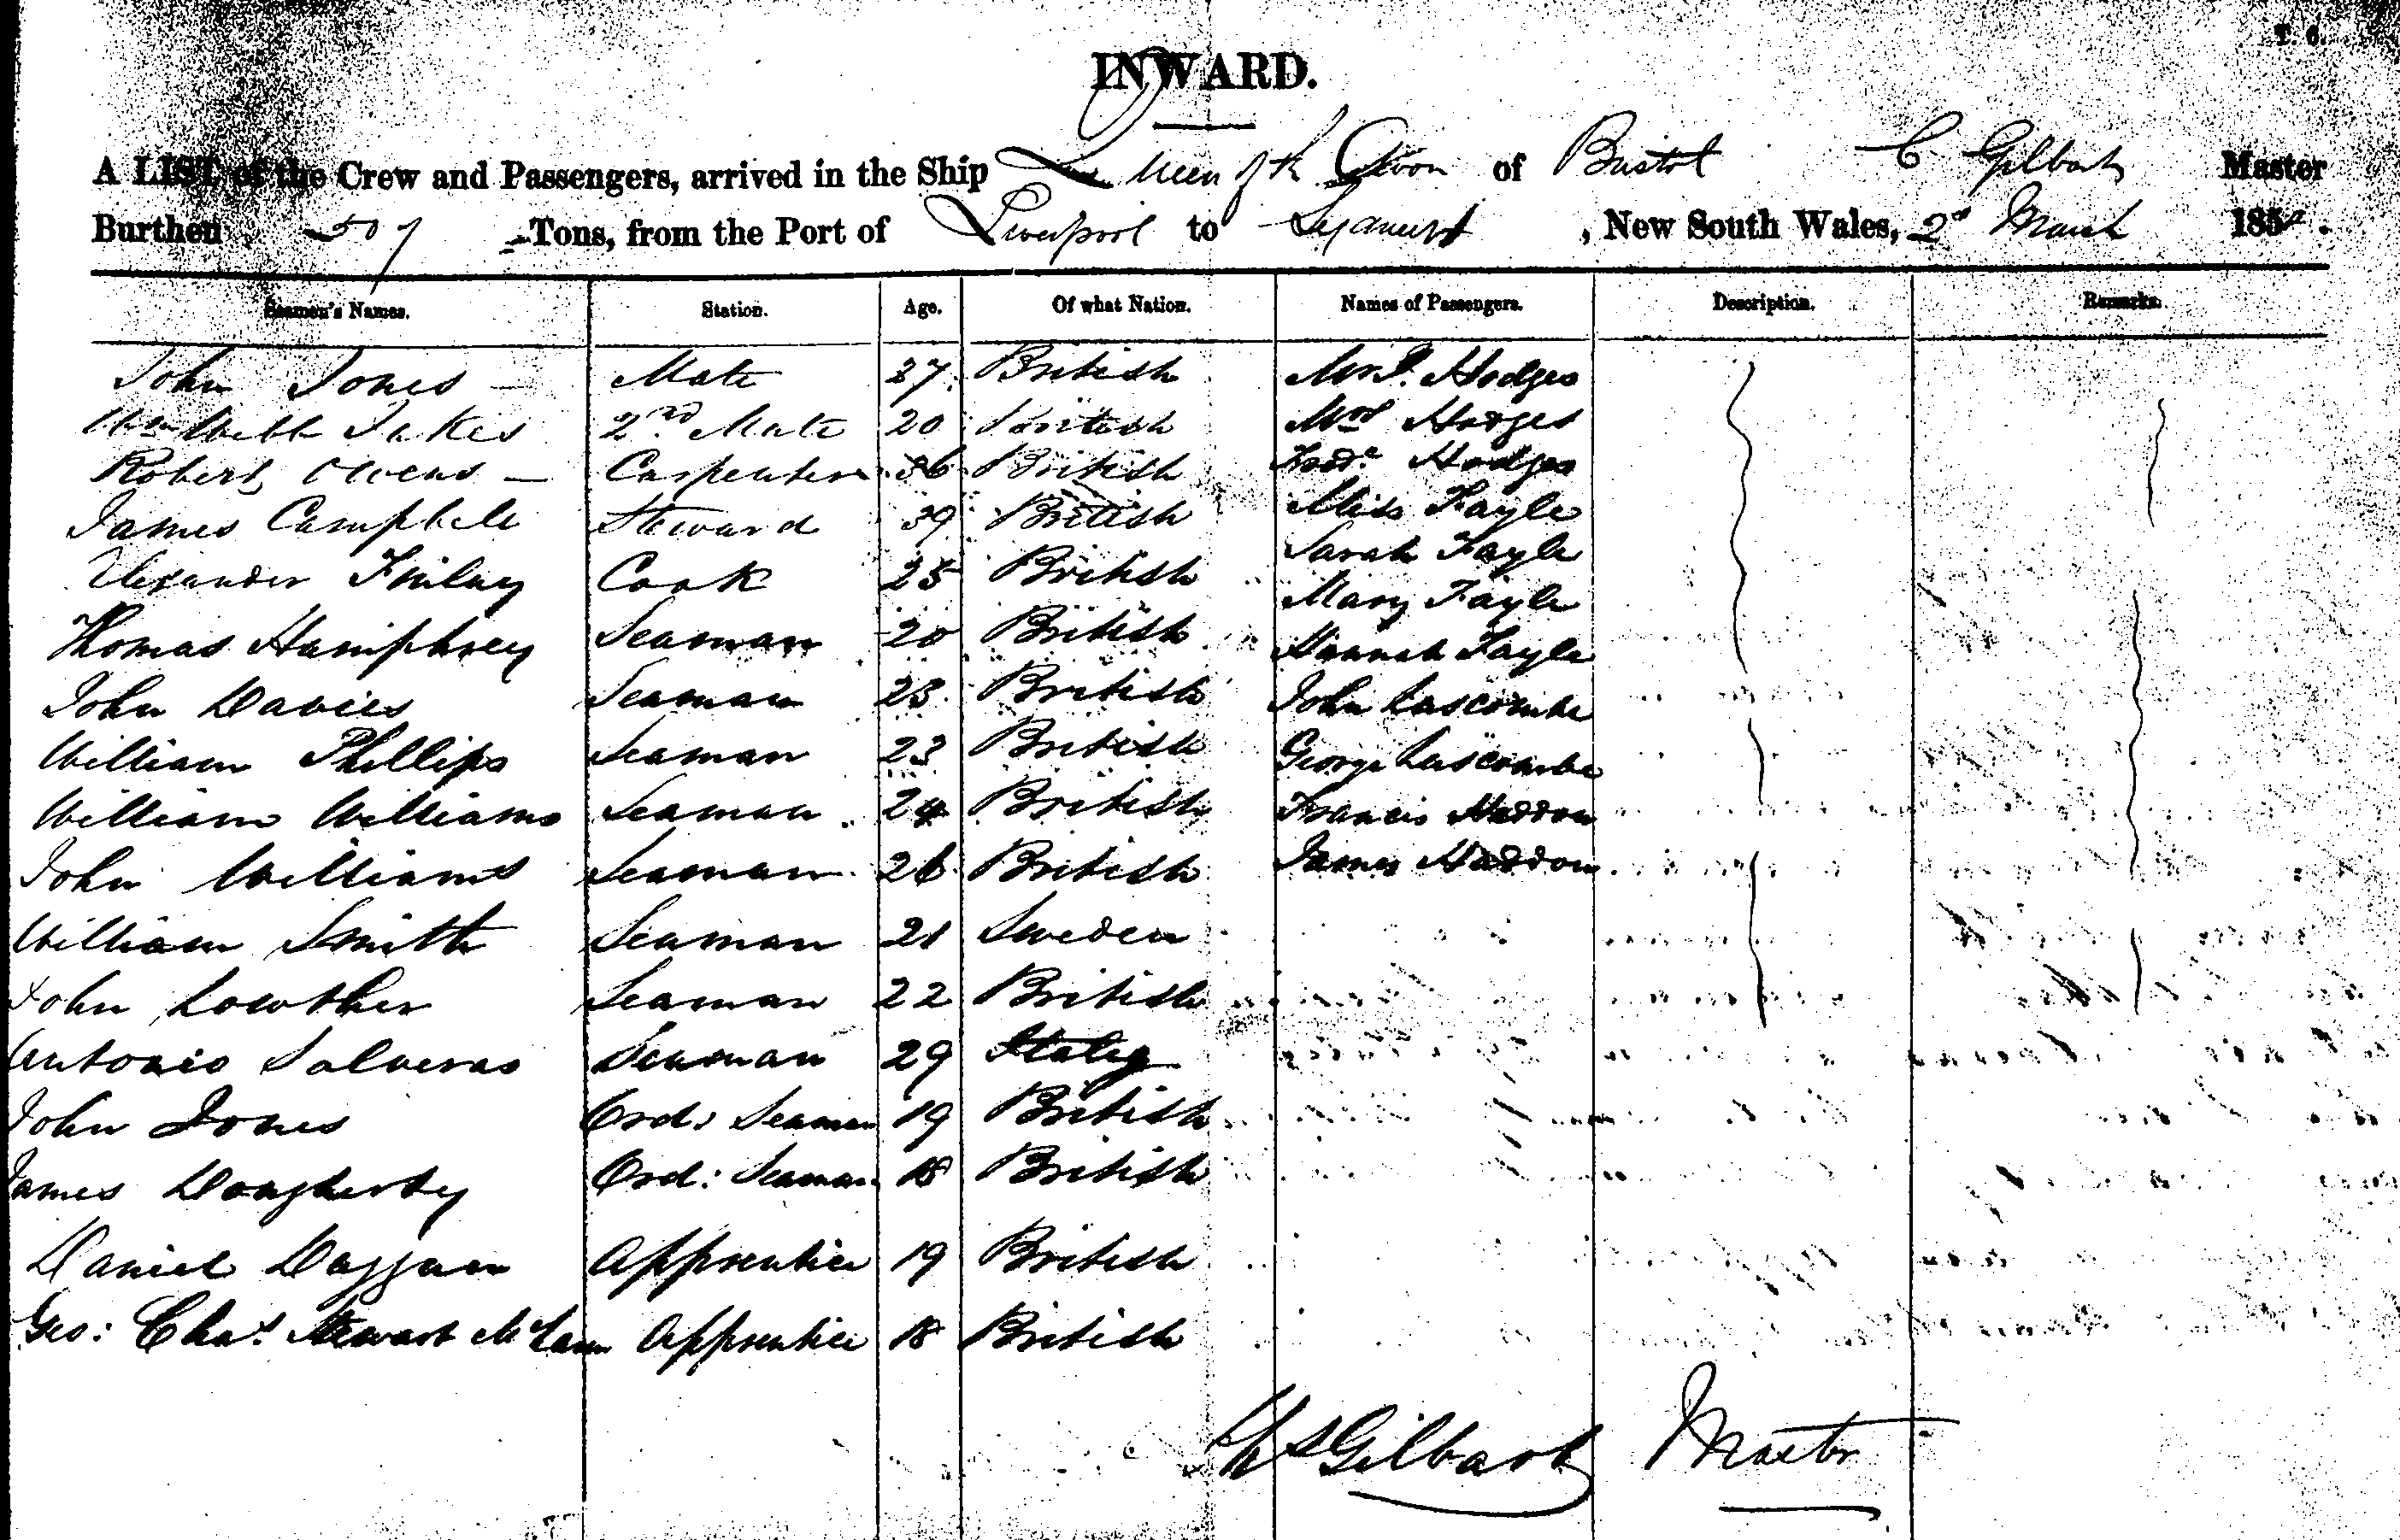 T. 6.
INWARD.
A LIST of the Crew and Passengers, arrived in the Ship Queen of the Avon of Bristol C Gilbart Master
Burthen 507 Tons, from the Port of Liverpool to , New South Wales, 2nd March 185
Seamen's Names. Station. Age. Of what Nation. Names of Passengers. Description. Remarks.
John Jones — Mate 27 British Mr J. Hodges
Wm Webb Jakes 2nd Mate 20 British Mrs Hodges
Robert Owens — Carpenter 36 British Fredk Hodges
James Campbell Steward 39 British Miss Fayle
Alexander Finlay Cook 25 British Sarah Fayle
Thomas Humphrey Seaman 20 British Mary Fayle
John Davies Seaman 25 British Hannah Fayle
William Phillips Seaman 23 British John Luscombe
William Williams Seaman 24 British George Luscombe
John Williams Seaman 26 British Francis Haddon
William Smith Seaman 21 Sweden James Haddon
John Lowther Seaman 22 British
Antonio Salveras Seaman 29 Italy
John Jones Ord: Seaman 19 British
James Dougherty Ord: Seaman 18 British
Daniel Duggan Apprentice 19 British
Geo: Chas. Stewart McCann Apprentice 18 British
Gilbart Master